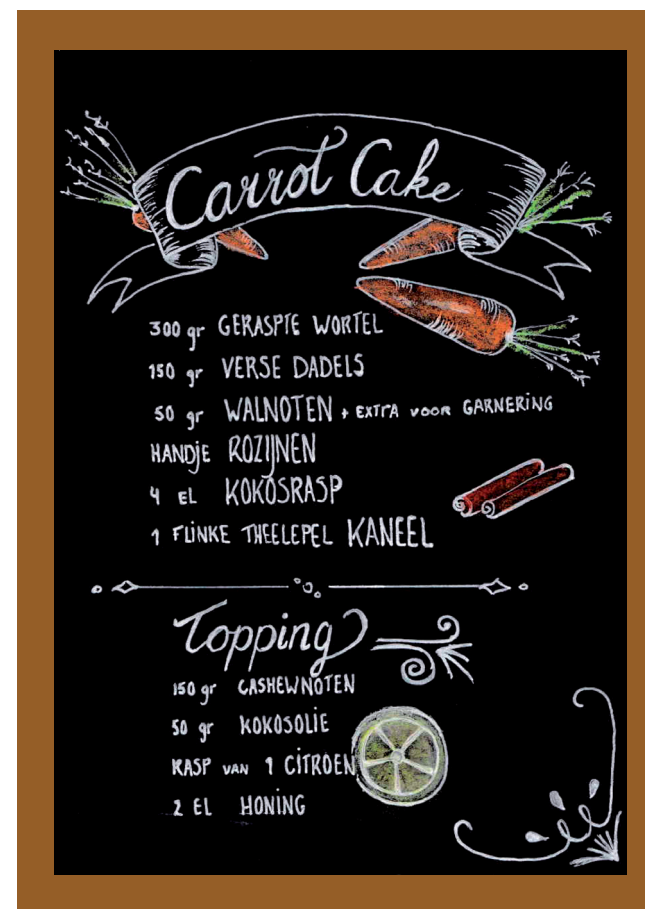 Carrot Cake
300 gr GERASPTE WORTEL
150 gr VERSE DADELS
50 gr WALNOTEN + EXTRA VOOR GARNERING
HANDJE ROZIJNEN
4 EL KOKOSRASP
1 FLINKE THEELEPEL KANEEL
Topping
150 gr CASHEWNOTEN
50 gr KOKOSOLIE
RASP VAN 1 CITROEN
2 EL HONING